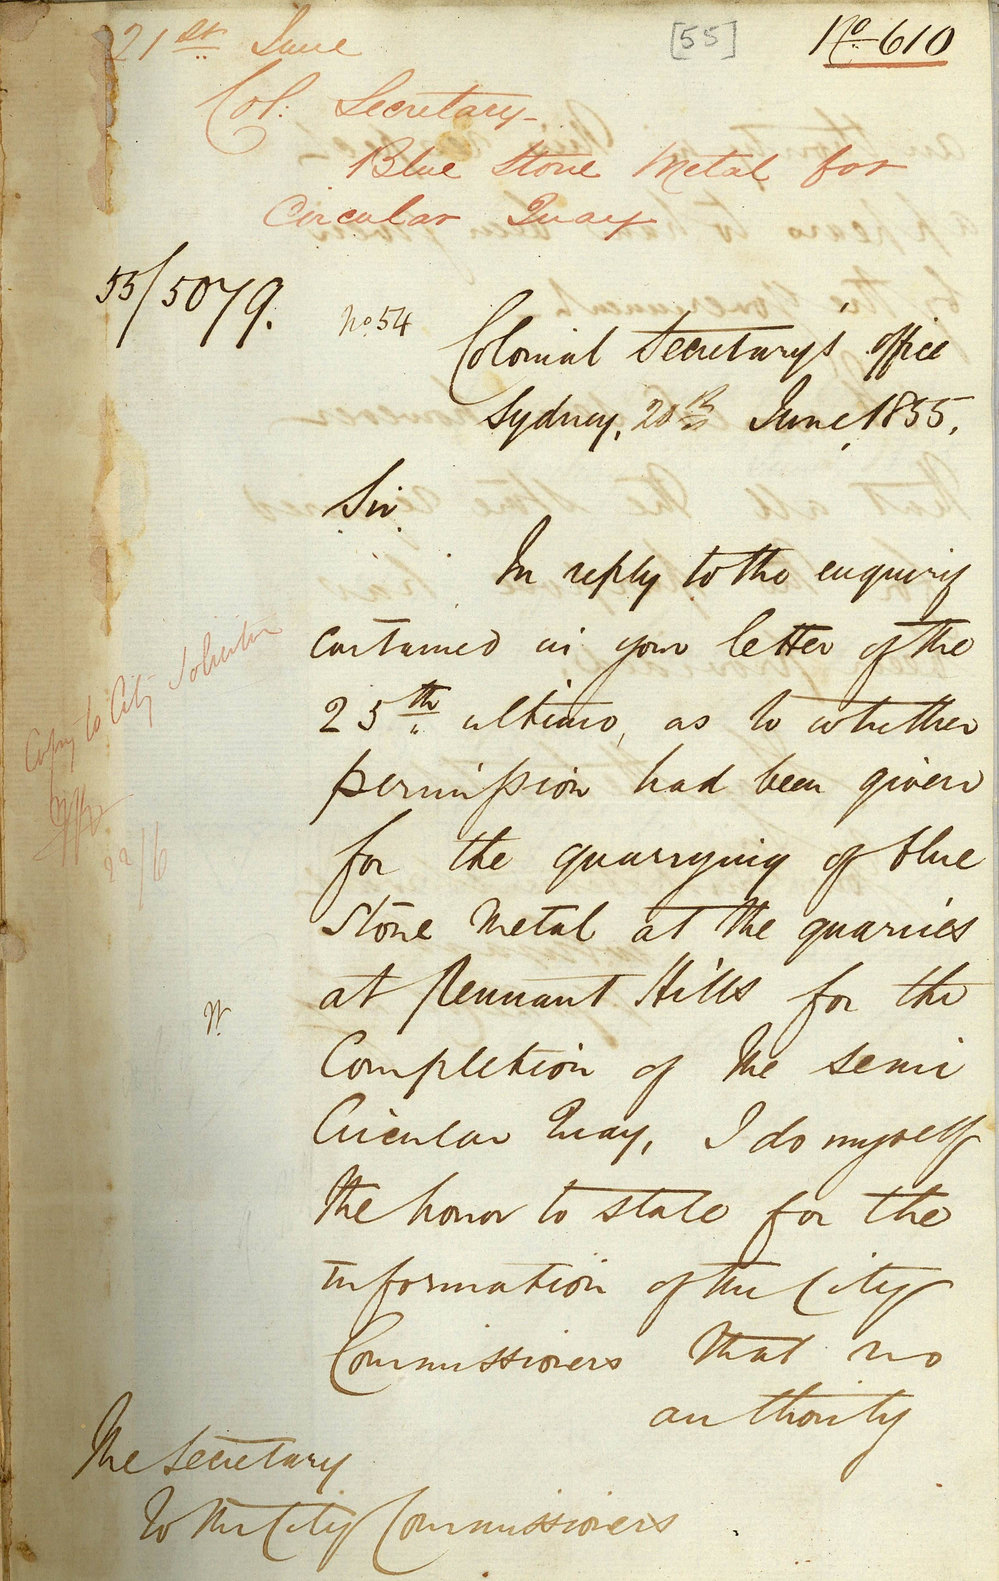 21st June
[55]
No 610
Col: Secretary -
Blue Stone Metal for
Circular Quay
55/5079.
No 54
Colonial Secretary's Office
Sydney, 20th June, 1855.
Sir
In reply to the enquiry
contained in your letter of the
25th ultimo, as to whether
permission had been given
for the quarrying of blue
Stone Metal at the quarries
at Pennant Hills for the
Completion of the Semi
Circular Quay, I do myself
the honor to state for the
information of the City
Commissioners that no
authority
The Secretary
to the City Commissioners
Copy to City Solicitor
22/6